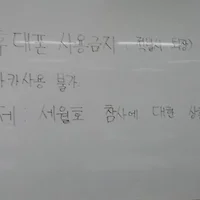 휴대폰 사용금지
사용 불가
제: 세월호 참사에 대한